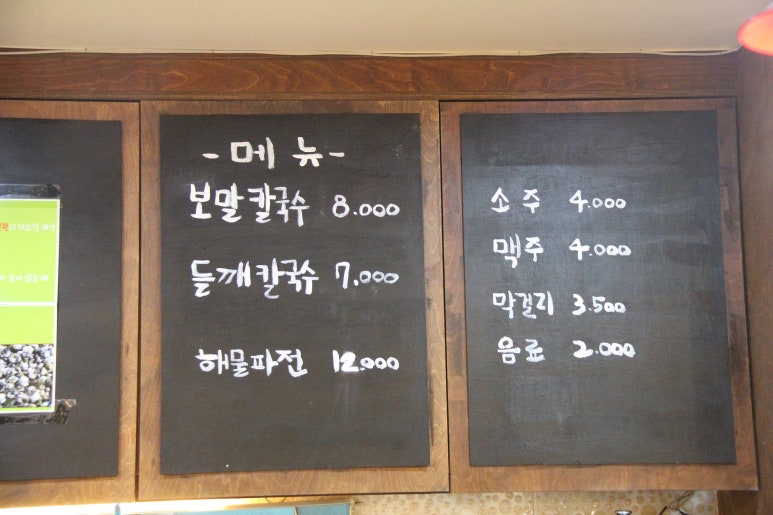 - 메 뉴 -
보말칼국수 8.000
들깨칼국수 7.000
해물파전 12.000
소 주 4.000
맥주 4.000
막걸리 3.500
음료 2.000